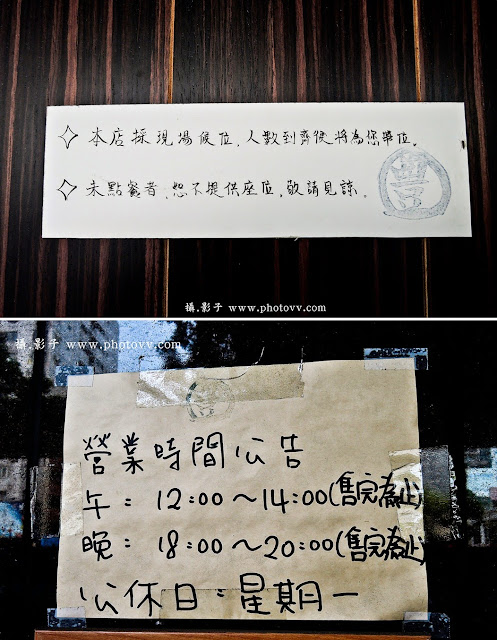 ✧ 本店採現場候位,人數到齊便將為您帶位。
✧ 未點餐者,恕不提供座位,敬請見諒。
豐
攝.影子 www.photovv.com
攝.影子 www.photovv.com
營業時間公告
午: 12:00~14:00(售完為止)
晚: 18:00~20:00(售完為止)
公休日:星期一